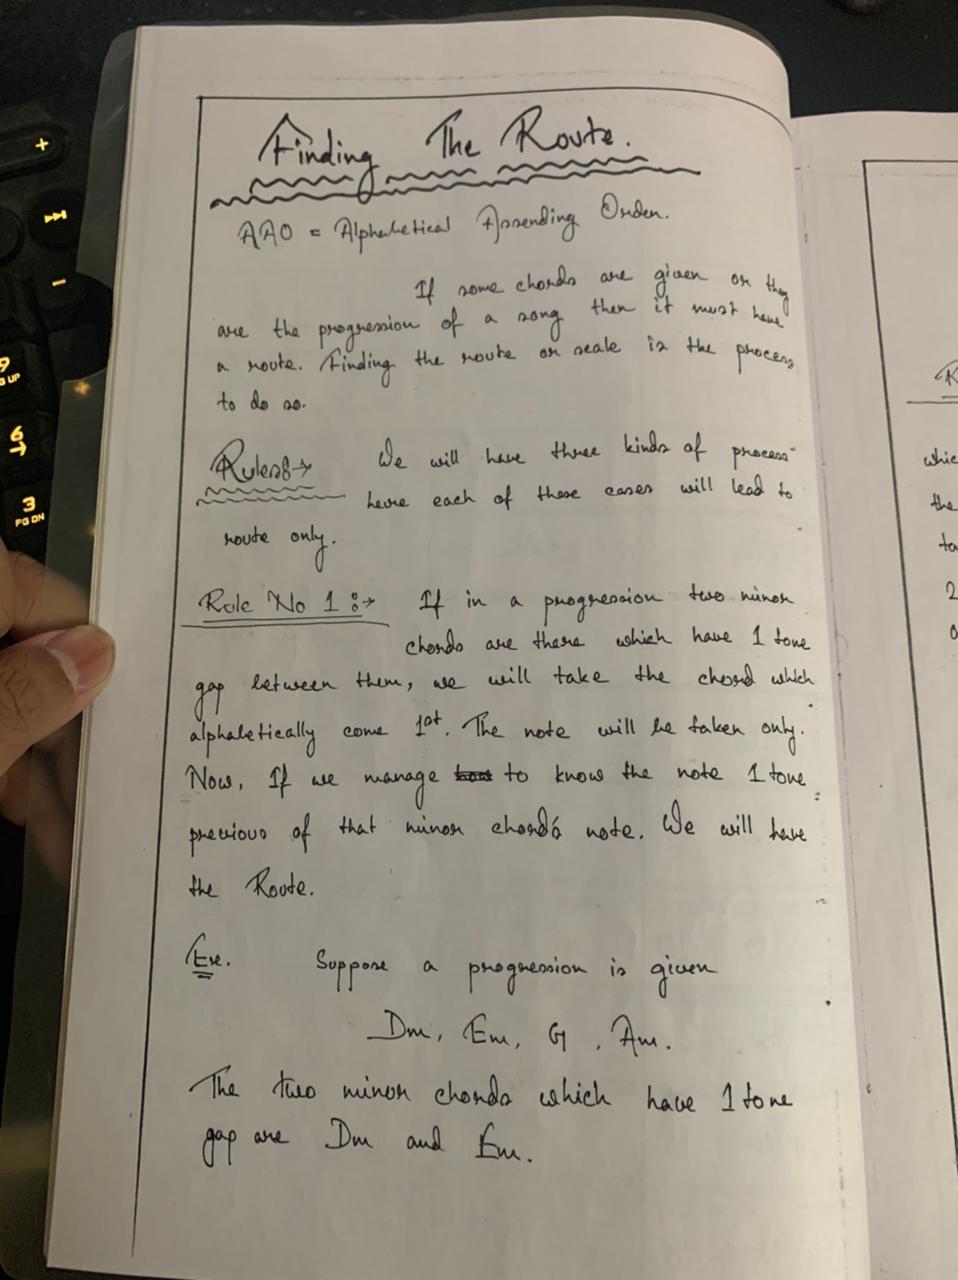 Finding The Route.
AAO = Alphabetical Assending Order.
If some chords are given or they
are the progression of a song then it must have
a route. Finding the route or scale is the process
to do so.
Rules:→ We will have three kinds of process
here each of these cases will lead to
route only.
Rule No 1:→ If in a progression two minor
chords are there which have 1 tone
gap between them, we will take the chord which
alphabetically come 1st. The note will be taken only.
Now, If we manage to know the note 1 tone
previous of that minor chord's note. We will have
the Route.
Ex. Suppose a progression is given
Dm, Em, G, Am.
The two minor chords which have 1 tone
gap are Dm and Em.
+
-
9
PG UP
6
3
PG DN
whic
the
ta
2